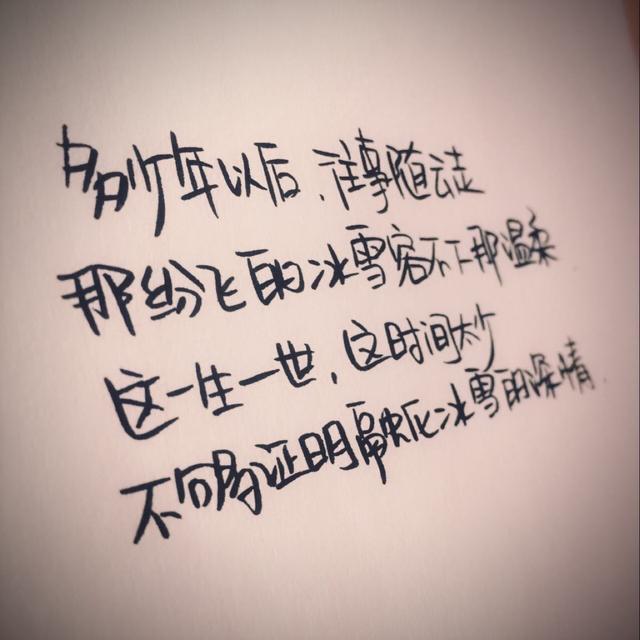 多少年以后,往事随云走
那纷飞的冰雪容不下那温柔
这一生一世,这时间太少
不够证明融化冰雪的深情